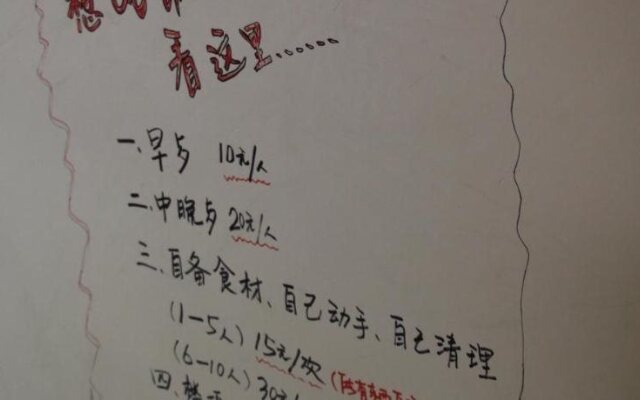 看这里......
一、早点 10元/人
二、中晚点 20元/人
三、自备食材、自己动手、自己清理
(1-5人) 15元/次
(6-10人) 30元/
四、